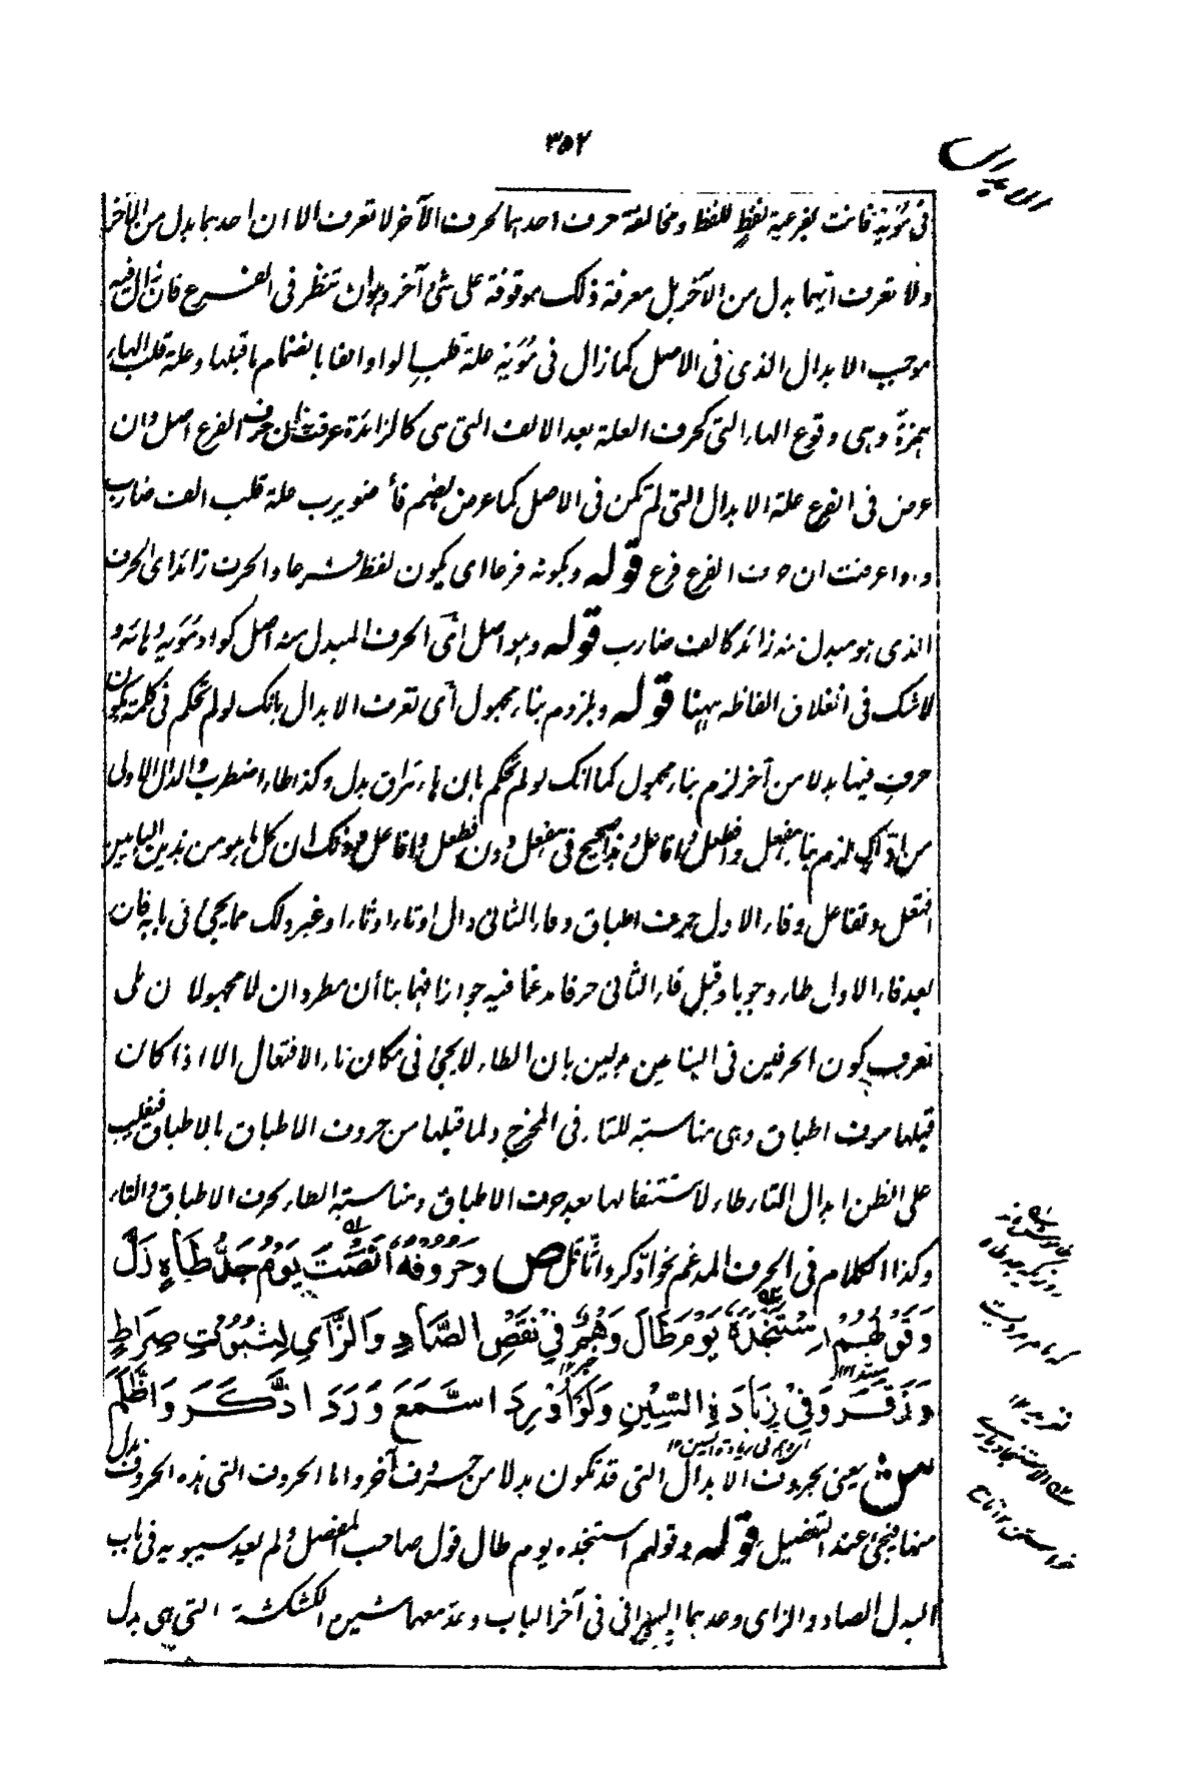 ۳۵۲
الابدال
فى مُوَيْهٍ فانت بفرعية لفظٍ للفظ ومخالفة حرف احدهما لحرف الآخر لا تعرف الا ان احدهما بدل من الآخر
ولا تعرف ايّهما بدل من الآخر بل معرفة ذلك موقوفة على شئ آخر وهو ان تنظر فى الفرع فان زال فيه
موجب الابدال الذى فى الاصل كما زال فى مُوَيْهٍ علة قلب الواو الفا بانضمام ما قبلها وعلة قلب الهاء
همزةً وهى وقوع الهاء التى كحرف العلة بعد الالف التى هى كالزائدة عرفت ان حرف الفرع اصل وان
عرض فى الفرع علة الابدال التى لم تكن فى الاصل كما عرض بضم فاء ضويرب علة قلب الف ضارب
واوا عرفت ان حرف الفرع فرع قوله وبكونه فرعا اى يكون لفظ فرعا والحرف زائد اى الحرف
الذى هو مبدل منه زائد كالف ضارب قوله وهو اصل اى الحرف المبدل منه اصل كواو مُوَيْهٍ وهائه و
لاشك فى انغلاق الفاظه ههنا قوله وبلزوم بناء مجهول اى تعرف الابدال بانك لو لم تحكم فى كلمة يكون
حرف فيها بدلا من آخر لزم بناء مجهول كما انك لو لم تحكم بان هاء هراق بدل وكذا طاء اضطرب والدال الاولى
من ادّارك لزم بناء هفعل وافطعل وافاعل وهذا صحيح فى هفعل دون افطعل وافاعل وذلك ان كل ما هو من هذين البابين
افتعل وتفاعل وفاء الاول حرف اطباق وفاء الثانى دال او تاء او ثاء او غير ذلك مما يجئ فى بابه فان
بعد فاء الاول طاء وجوبا وقبل فاء الثانى حرفا مدغما فيه جوازا فهما بناأن مطردان لا مجهولان بلى
تعرف كون الحرفين فى البنائين بدلين بان الطاء لا يجئ فى مكان تاء الافتعال الا اذا كان
قبلها حرف اطباق وهى مناسبة للتاء فى المخرج ولما قبلها من حروف الاطباق بالاطباق فيغلب
على الظن ابدال التاء طاء لاستثقالها بعد حرف الاطباق ومناسبة الطاء لحرف الاطباق والتاء
وكذا الكلام فى الحرف المدغم نحو اذكر واثّاقل ص وَحُرُوْفُهُ اَنْصَتَ يَوْمَ جَدُّ طَاهٍ زَلَّ
وَقَوْلُهُمْ اِسْتَنْجَدَهُ يَوْمَ طَالَ وَهْمٌ فِيْ نَقْصِ الصَّادِ وَالزَّايِ لِثُبُوْتِ صِرَاطٍ
وَزَقَرَ وَفِيْ زِيَادَةِ السِّيْنِ وَلَوْ اُوْرِدَ اسَّمَعَ وَرَدَ اذَّكَرَ وَاظَّلَمَ
اى وهم فى زيادة السين ۱۲
ش يعنى بحروف الابدال التى قد تكون بدلا من حروف آخر واما الحروف التى هذه الحروف بدل
منها فيجئ عند التفصيل قوله وقولهم استنجده يوم طال قول صاحب المفصل ولم يعد سيبويه فى باب
البدل الصاد والزاى وعدهما السيرافى فى آخر الباب وعدّ معهما شين الكشكشة التى هى بدل